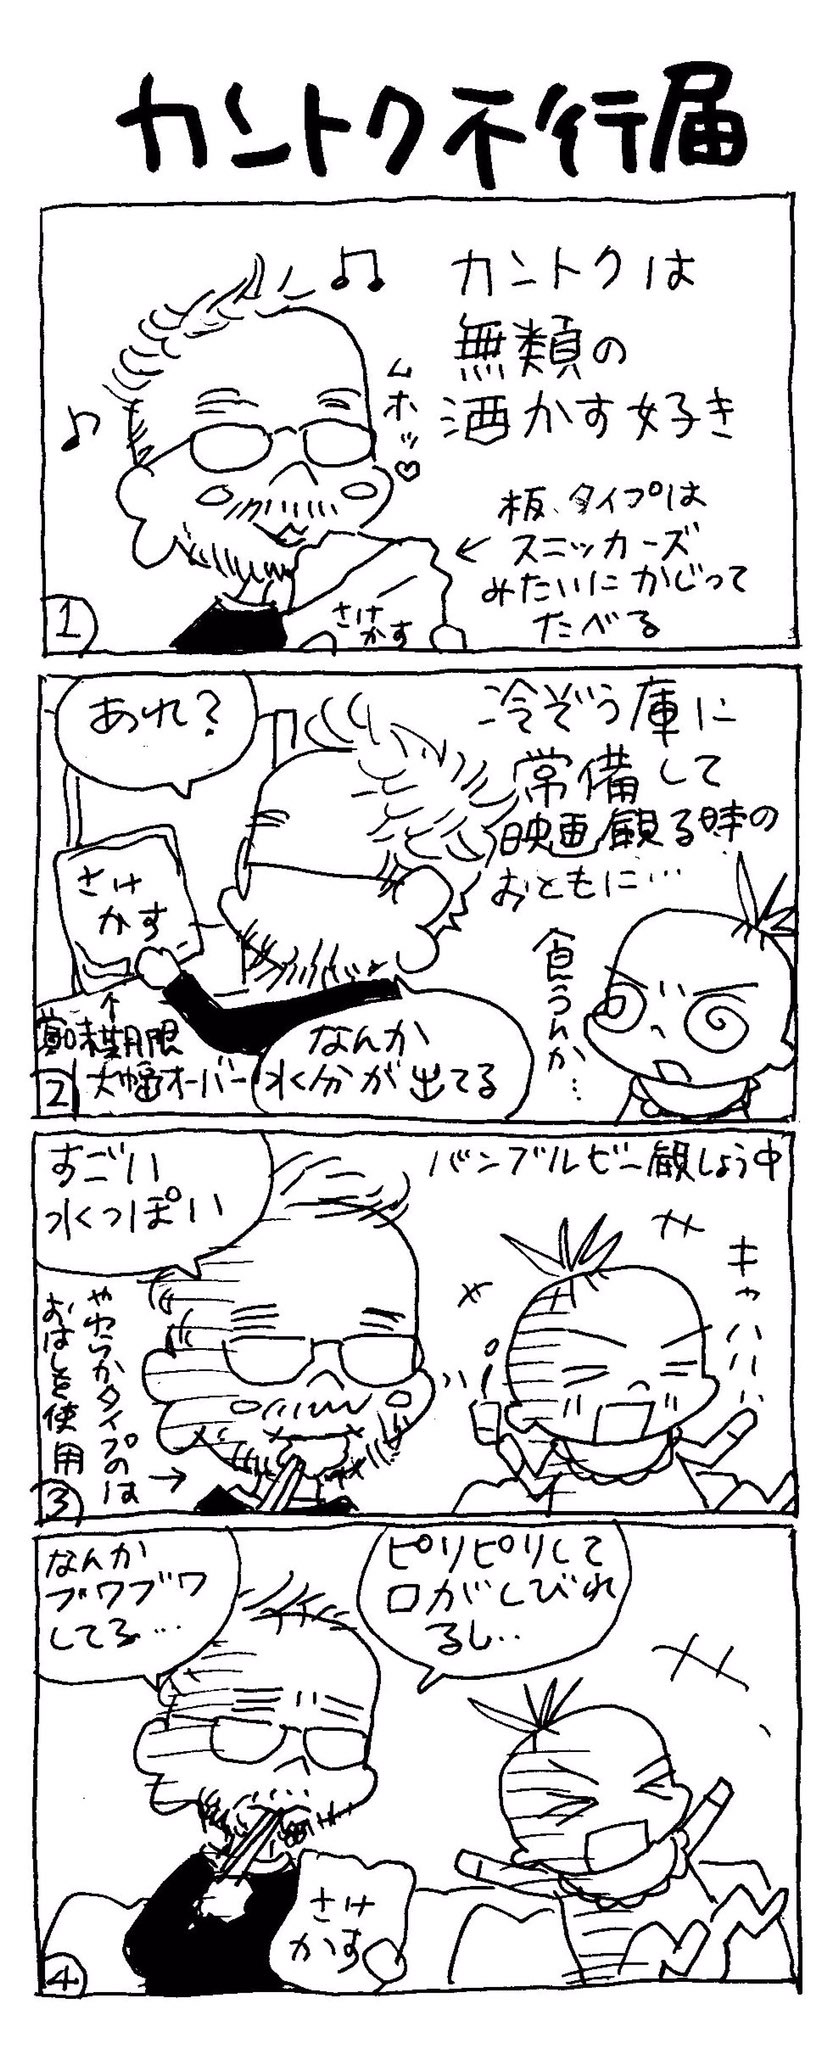 カントク不行届
カントクは
無類の
酒かす好き
ムホッ♡
板タイプは
スニッカーズ
みたいにかじって
たべる
さけ
かす
1
冷ぞう庫に
常備して
映画観る時の
おともに…
あれ?
さけ
かす
食うんか…
賞味期限
大幅オーバー
なんか
水分が出てる
2
バンブルビー観しょう中
すごい
水っぽい
キャハハハ
やわらかタイプのは
おはしを使用
3
ピリピリして
口がしびれ
るし…
なんか
ブワブワ
してる…
さけ
かす
4